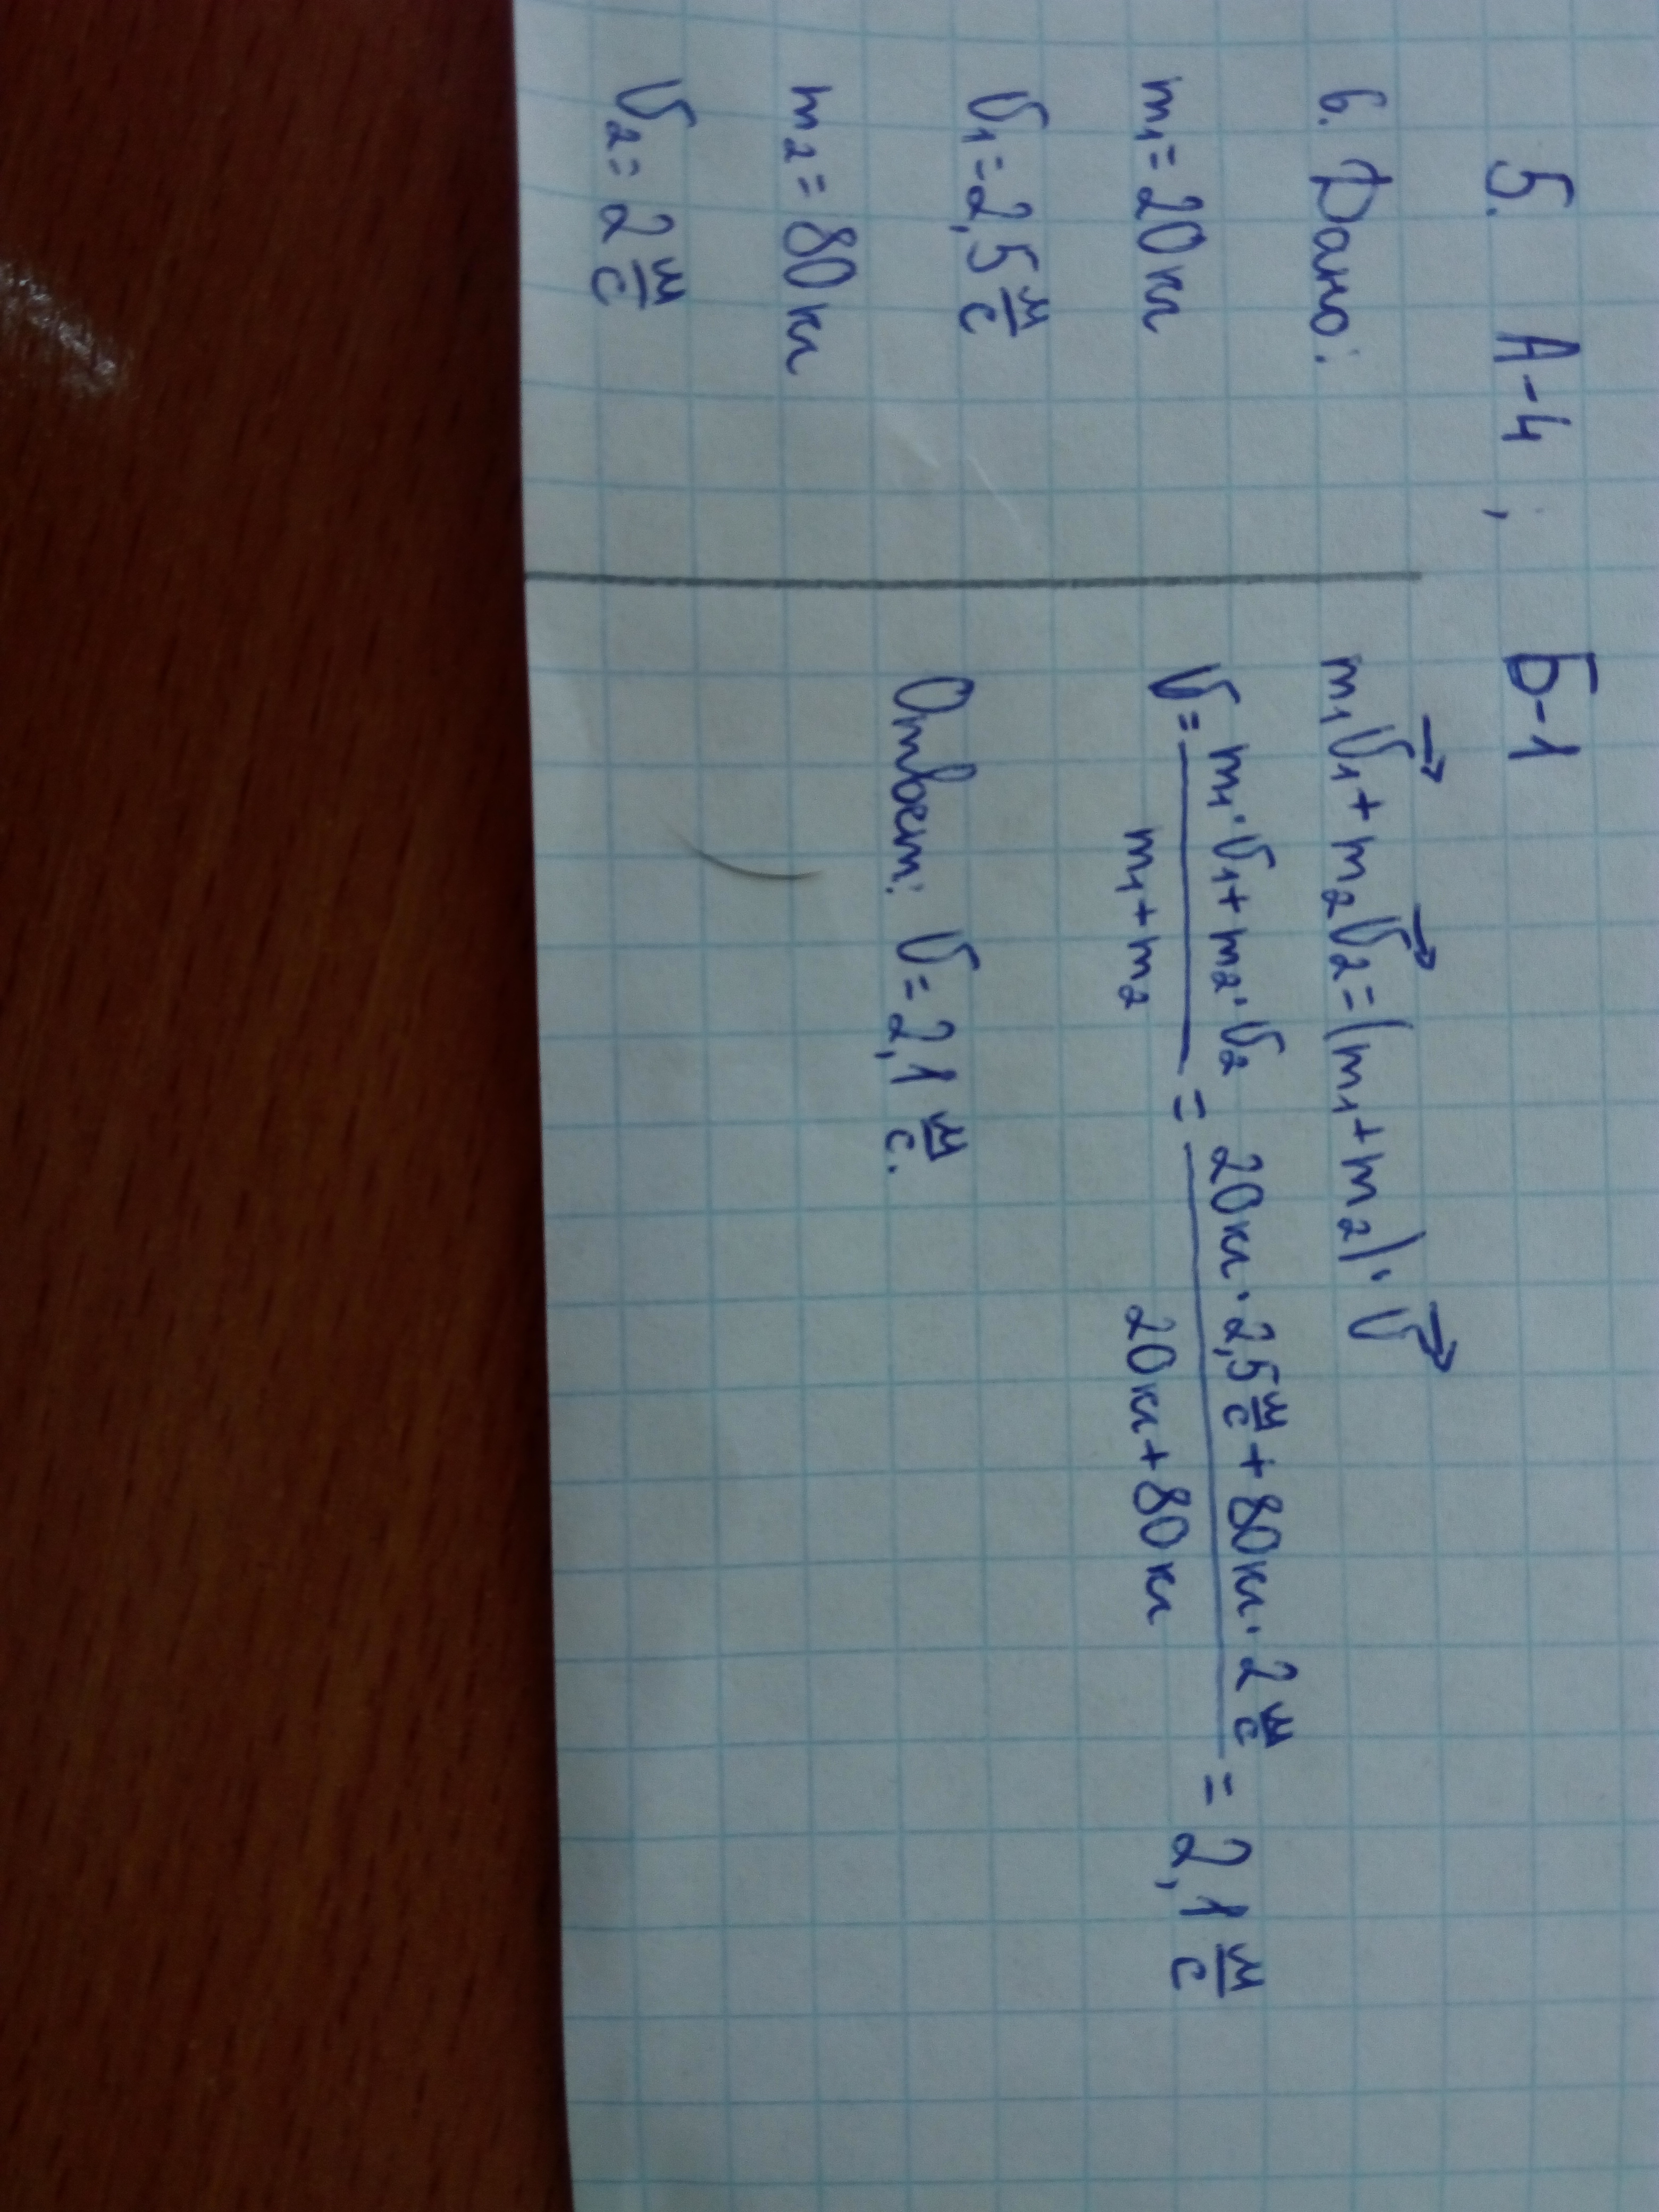 5. А-4; Б-1
6. Дано:
m₁=20кг
υ₁=2,5 м/с
m₂=80кг
υ₂=2 м/с
m₁υ⃗₁+m₂υ⃗₂=(m₁+m₂)·υ⃗
υ=(m₁·υ₁+m₂·υ₂)/(m₁+m₂)=(20кг·2,5 м/с+80кг·2 м/с)/(20кг+80кг)=2,1 м/с
Ответ: υ=2,1 м/с.